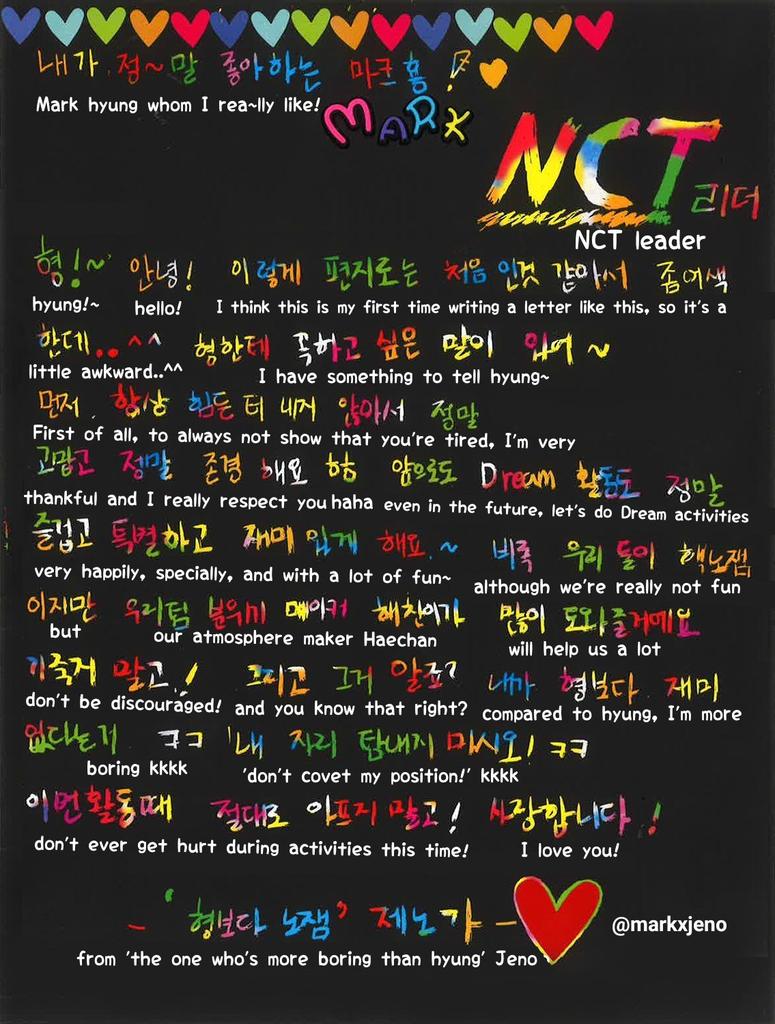 내가 정~말 좋아하는 마크 형!
Mark hyung whom I rea~lly like!
MARK
NCT 리더
NCT leader
형!~ 안녕! 이렇게 편지로는 처음 인것 같아서 좀어색
hyung!~ hello! I think this is my first time writing a letter like this, so it's a
한데..^^ 형한테 꼭하고 싶은 말이 있어~
little awkward..^^ I have something to tell hyung~
먼저, 항상 힘든 티 내지 않아서 정말
First of all, to always not show that you're tired, I'm very
고맙고 정말 존경 해요 핳 앞으로도 Dream 활동도 정말
thankful and I really respect you haha even in the future, let's do Dream activities
즐겁고 특별하고 재미 있게 해요.~ 비록 우리 둘이 핵노잼
very happily, specially, and with a lot of fun~ although we're really not fun
이지만 우리팀 분위기 메이커 해찬이가 많이 도와줄거예요
but our atmosphere maker Haechan will help us a lot
기죽지 말고! 그리고 그거 알죠? 내가 형보다 재미
don't be discouraged! and you know that right? compared to hyung, I'm more
없다는거 ㅋㅋ '내 자리 탐내지 마시오! ㅋㅋ
boring kkkk 'don't covet my position!' kkkk
이번활동때 절대로 아프지 말고! 사랑합니다!
don't ever get hurt during activities this time! I love you!
- '형보다 노잼' 제노가 -
@markxjeno
from 'the one who's more boring than hyung' Jeno